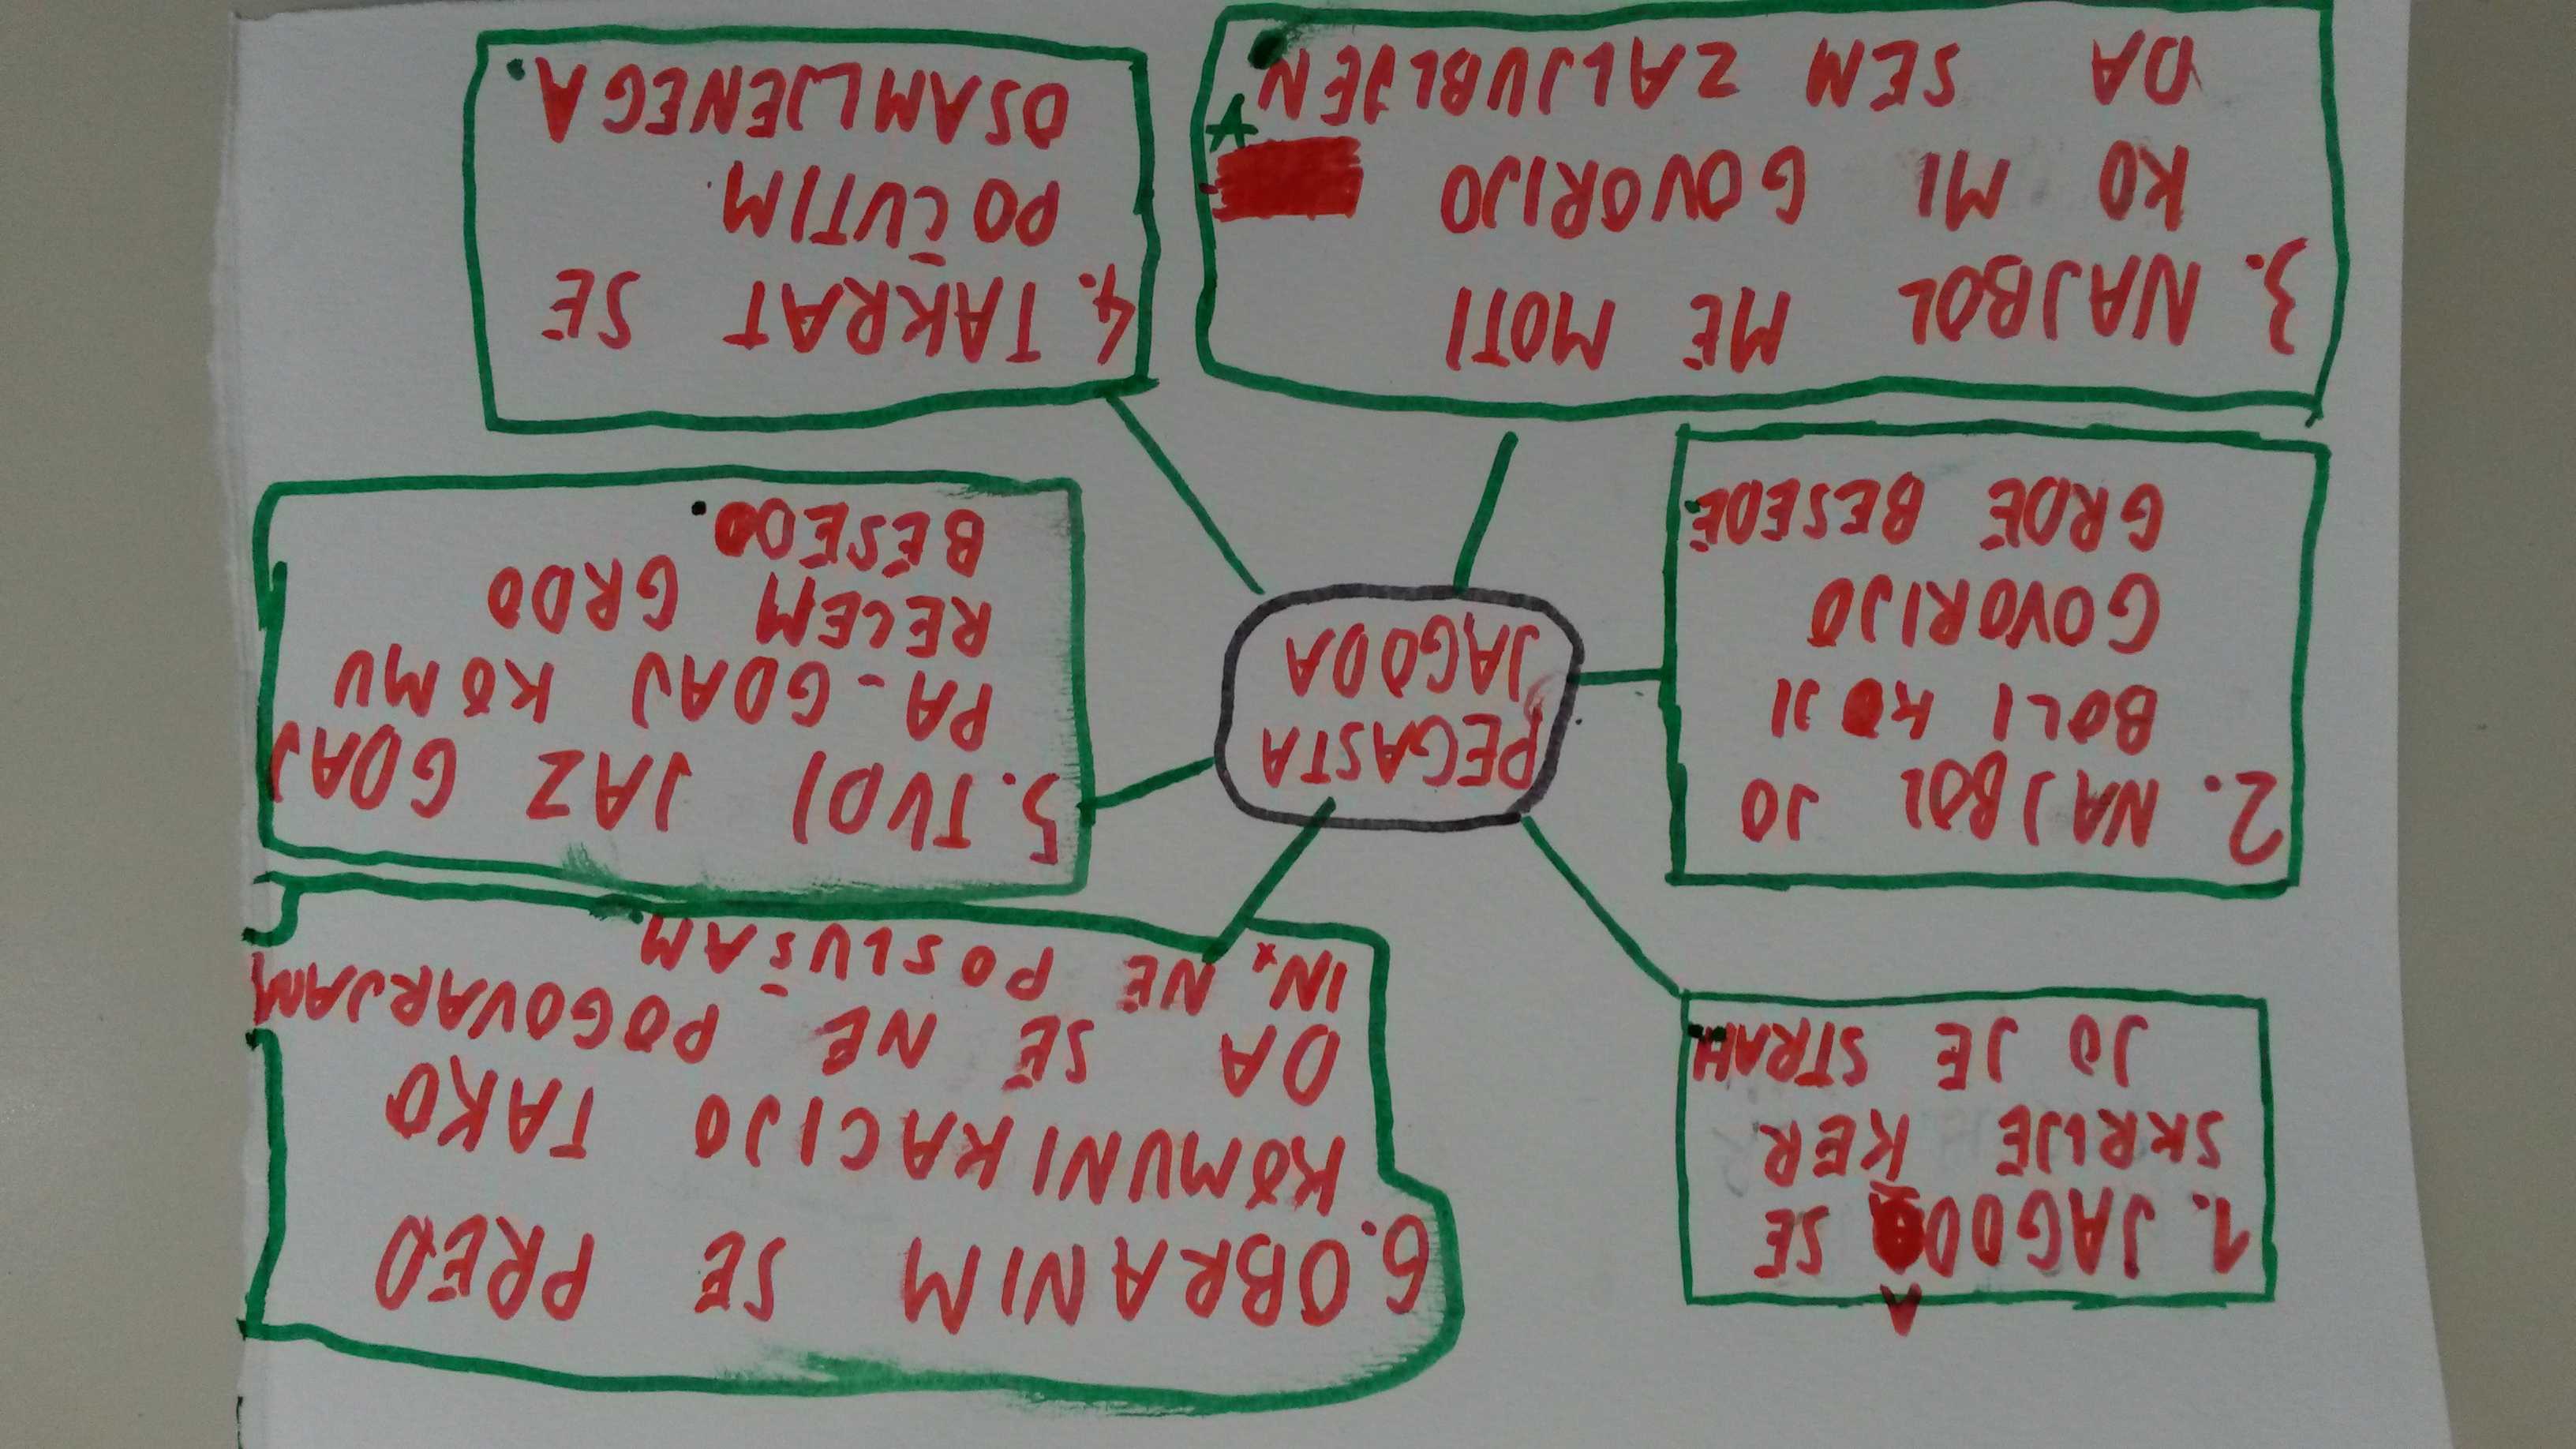 PEGASTA
JAGODA
1. JAGODA SE
SKRIJE KER
JO JE STRAH.
2. NAJBOL JO
BOLI KO JI
GOVORIJO
GRDE BESEDE.
3. NAJBOL ME MOTI
KO MI GOVORIJO
DA SEM ZALJUBLJEN
A.
4. TAKRAT SE
POČUTIM
OSAMLJENEGA.
5. TUDI JAZ GDAJ
PA-GDAJ KOMU
REČEM GRDO
BESEDO.
6. OBRANIM SE PRED
KOMUNIKACIJO TAKO
DA SE NE POGOVARJAM
IN NE POSLUŠAM.